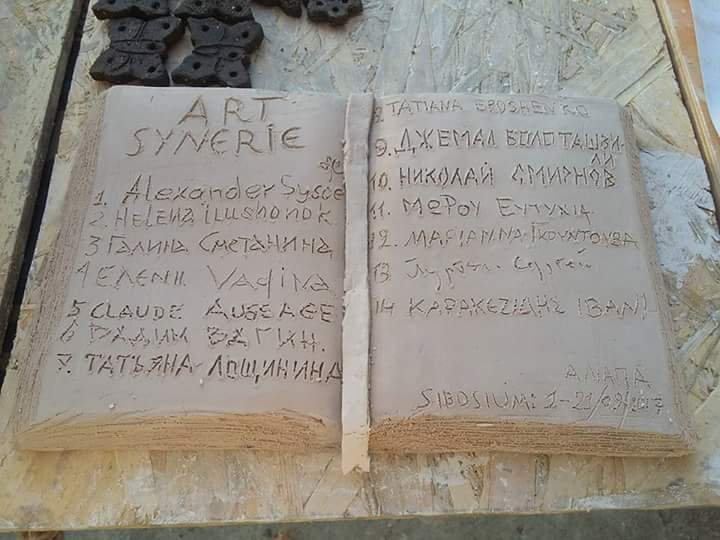 ART
SYNERIE
1. Alexander Sysoe
2. HELENA ilushonok
3 ГАЛИНА СМЕТАНИНА
4 ЕЛЕНА Vadina
5 CLAUDE AUBEAGE
6 ВАДИМ ВАГИН.
7. ТАТЬЯНА ЛОЩИНИНА
8. TATIANA EROSHENKO
9. ДЖЕМАЛ БОЛОТАШВИ-
ЛИ
10. НИКОЛАЙ СМИРНОВ
11. ΜΕΡΟΥ ΕΥΤΥΧΙΑ
12. ΜΑΡΙΑΝΝΑ ΓΚΟΥΝΤΟΥΒΑ
13 Сергей
14 ΚΑΡΑΚΕΖΙΔΗΣ ΙΒΑΝ
АНАПА
SIBOSIUM: 1-21/09